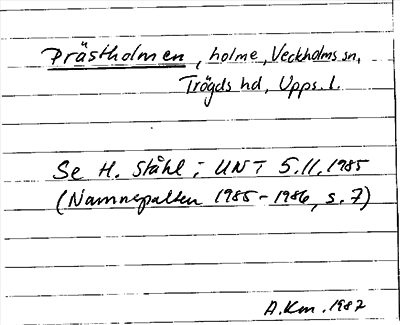 Prästholmen, holme, Veckholms sn,
Trögds hd, Upps. l.
Se H. Ståhl i UNT 5.11.1985
(Namnspalten 1985-1986, s. 7)
A.Km. 1987